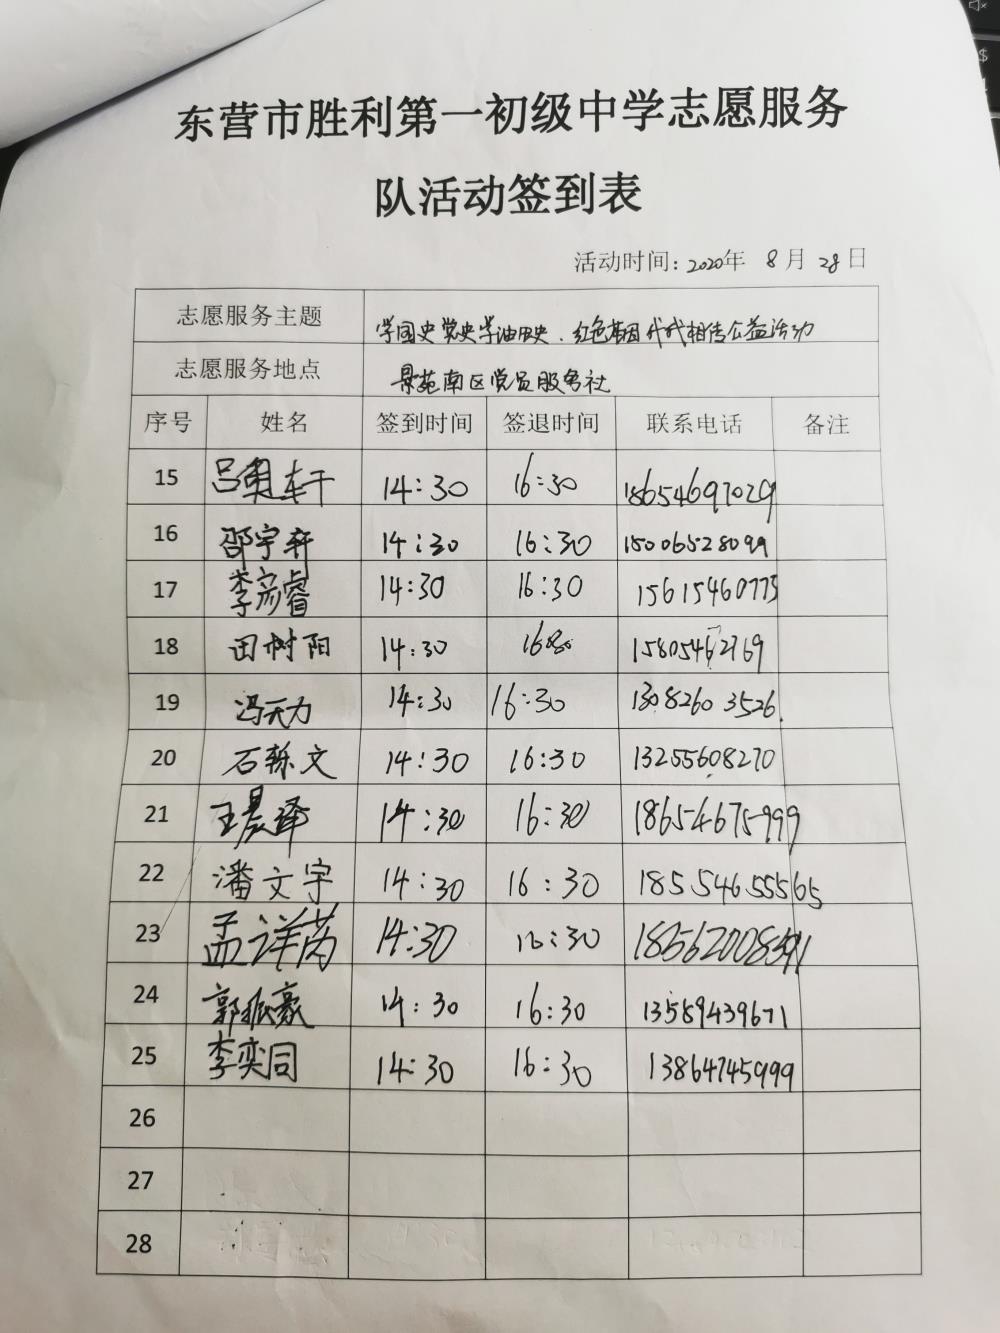 东营市胜利第一初级中学志愿服务
队活动签到表
活动时间：2020年 8月 28日
志愿服务主题 学国史党史学油田史、红色基因代代相传公益活动
志愿服务地点 景苑南区党员服务社
序号 姓名 签到时间 签退时间 联系电话 备注
15 吕奥轩 14:30 16:30 18654697029
16 邵宇轩 14:30 16:30 15006528099
17 李彦睿 14:30 16:30 15615460773
18 田树阳 14:30 16:30 15805462769
19 冯天力 14:30 16:30 13082603526
20 石轹文 14:30 16:30 13255608270
21 王晨泽 14:30 16:30 18654675999
22 潘文宇 14:30 16:30 18554655565
23 孟详芮 14:30 16:30 18562008591
24 郭振豪 14:30 16:30 13589439671
25 李奕同 14:30 16:30 13864745999
26
27
28